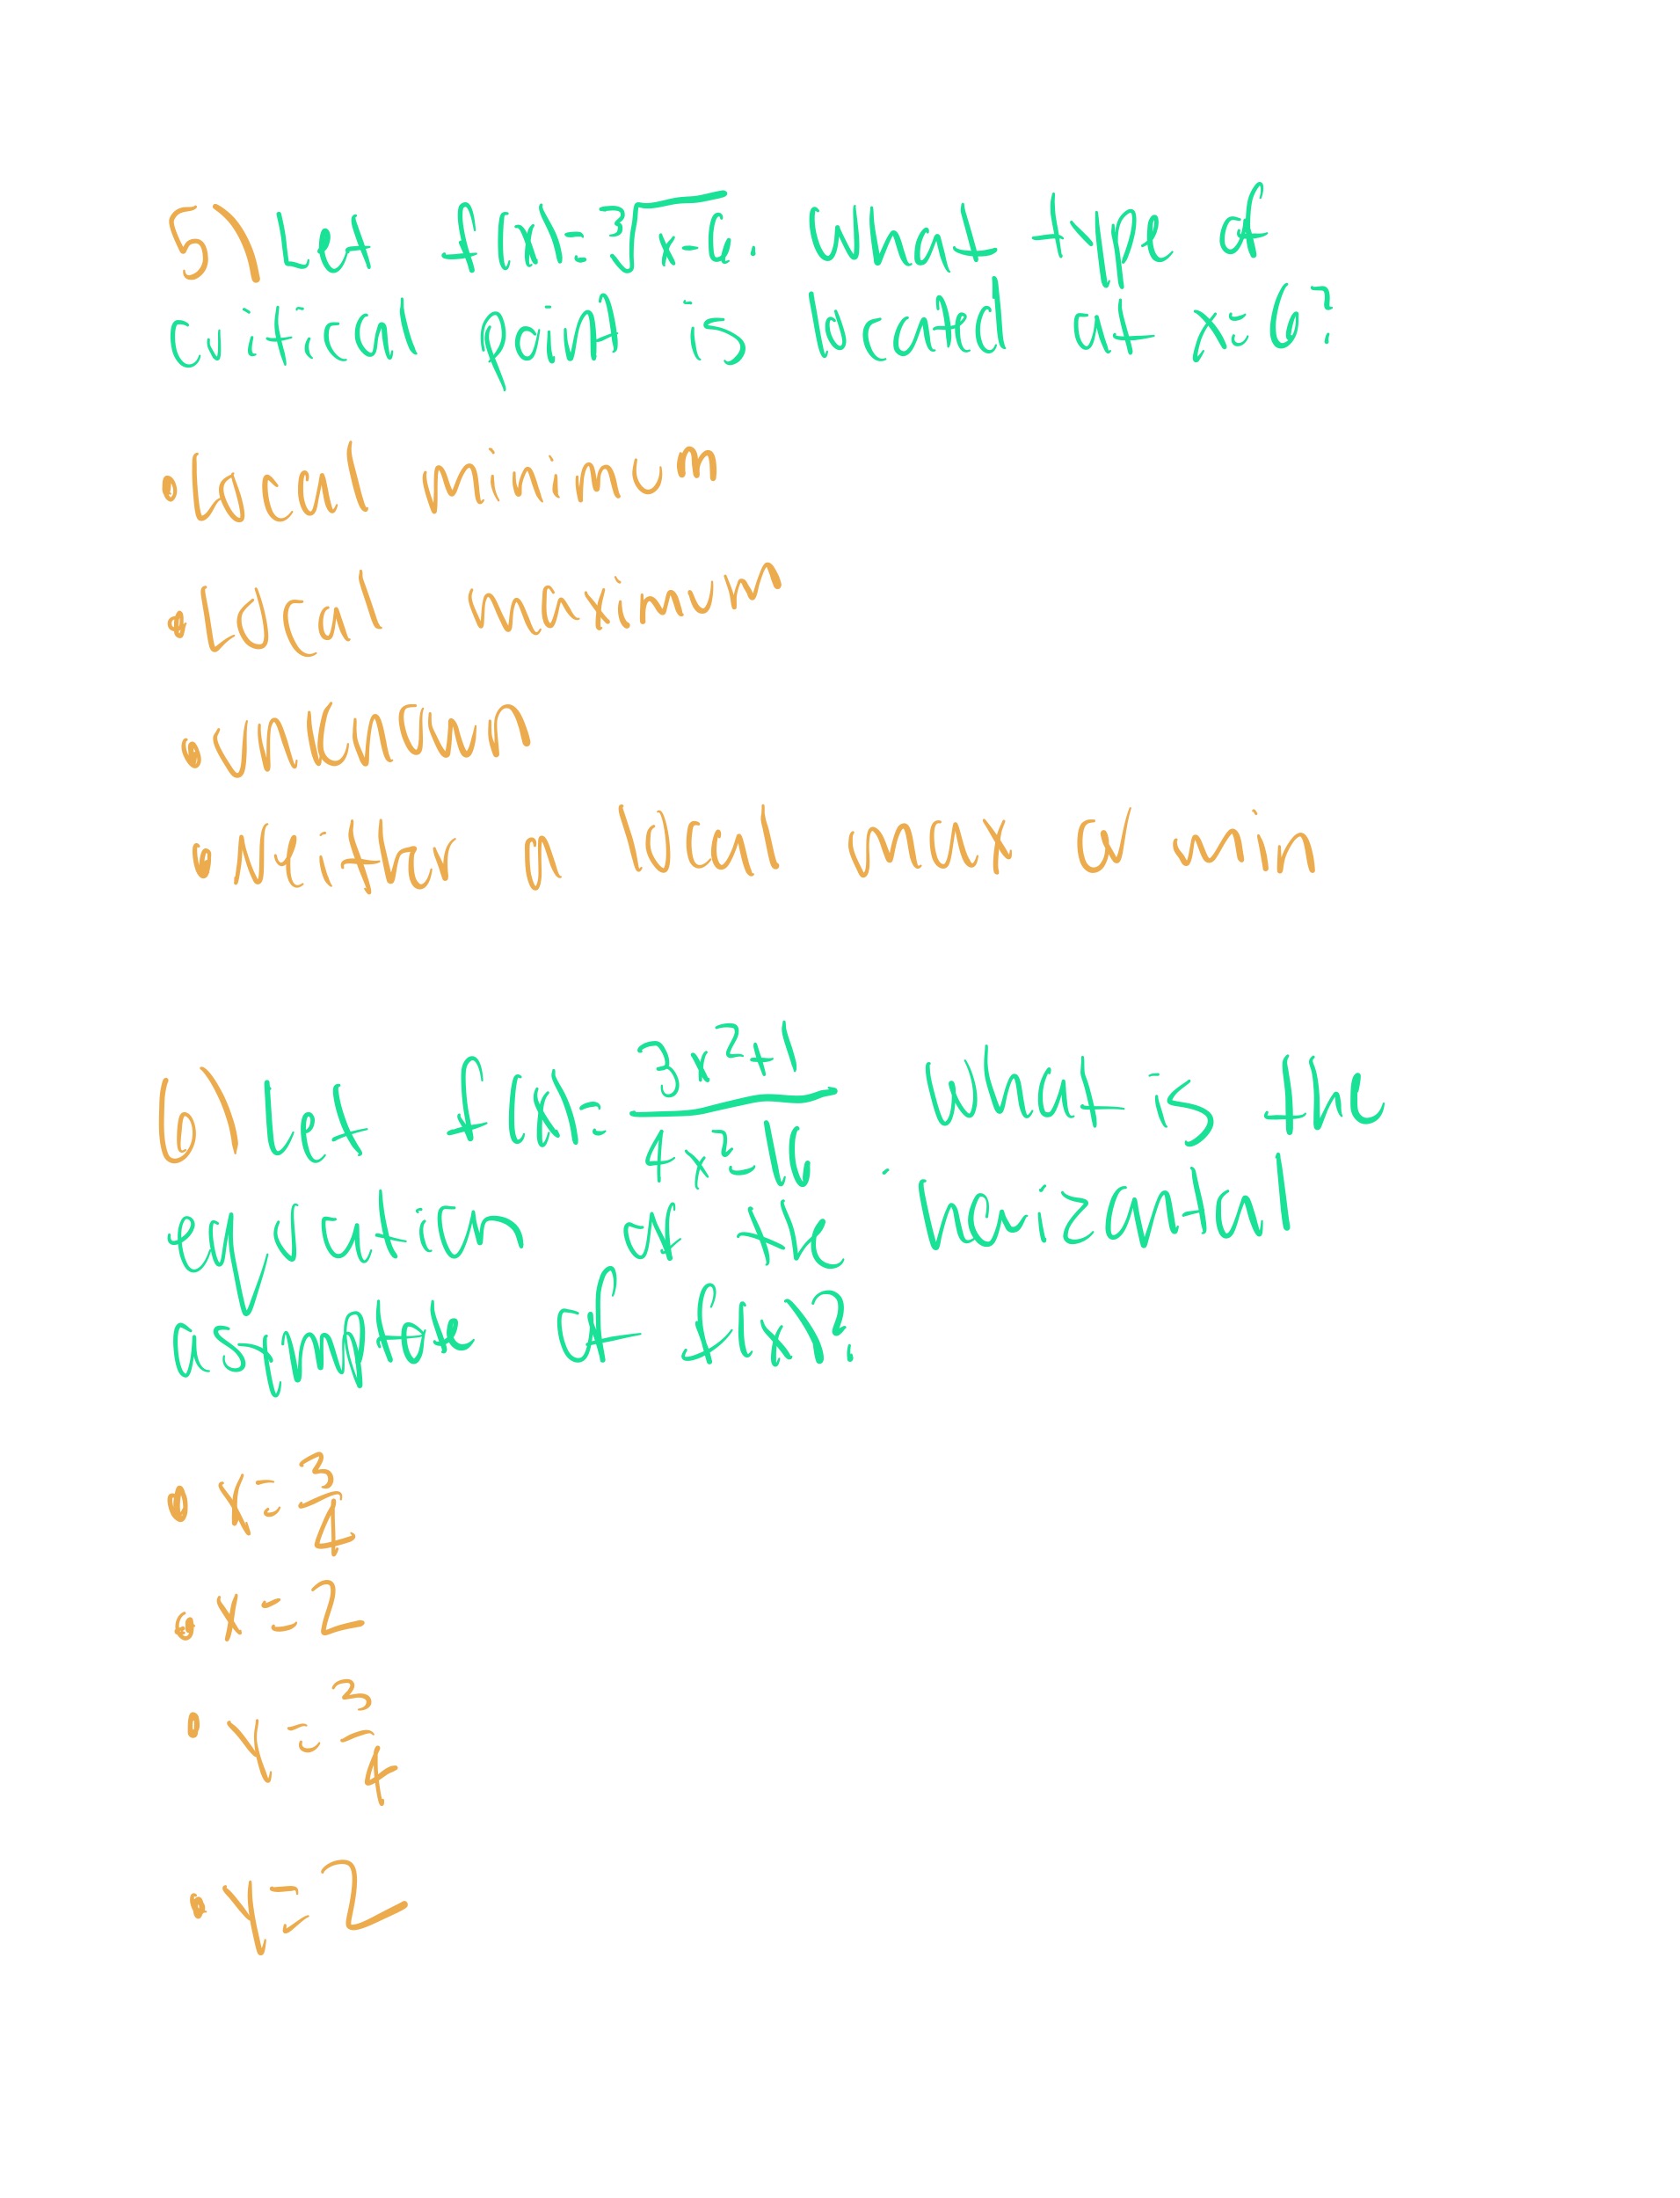 5) Let f(x)=∛x-6. What type of
critical point is located at x=6?
•Local minimum
•Local maximum
•unknown
•neither a local max or min
6) Let f(x)= 3x²+1 / 4x²-16 . What is the
equation of the horizontal
asymptote of f(x)?
• x= 3/4
• x=2
• y= 3/4
• y=2